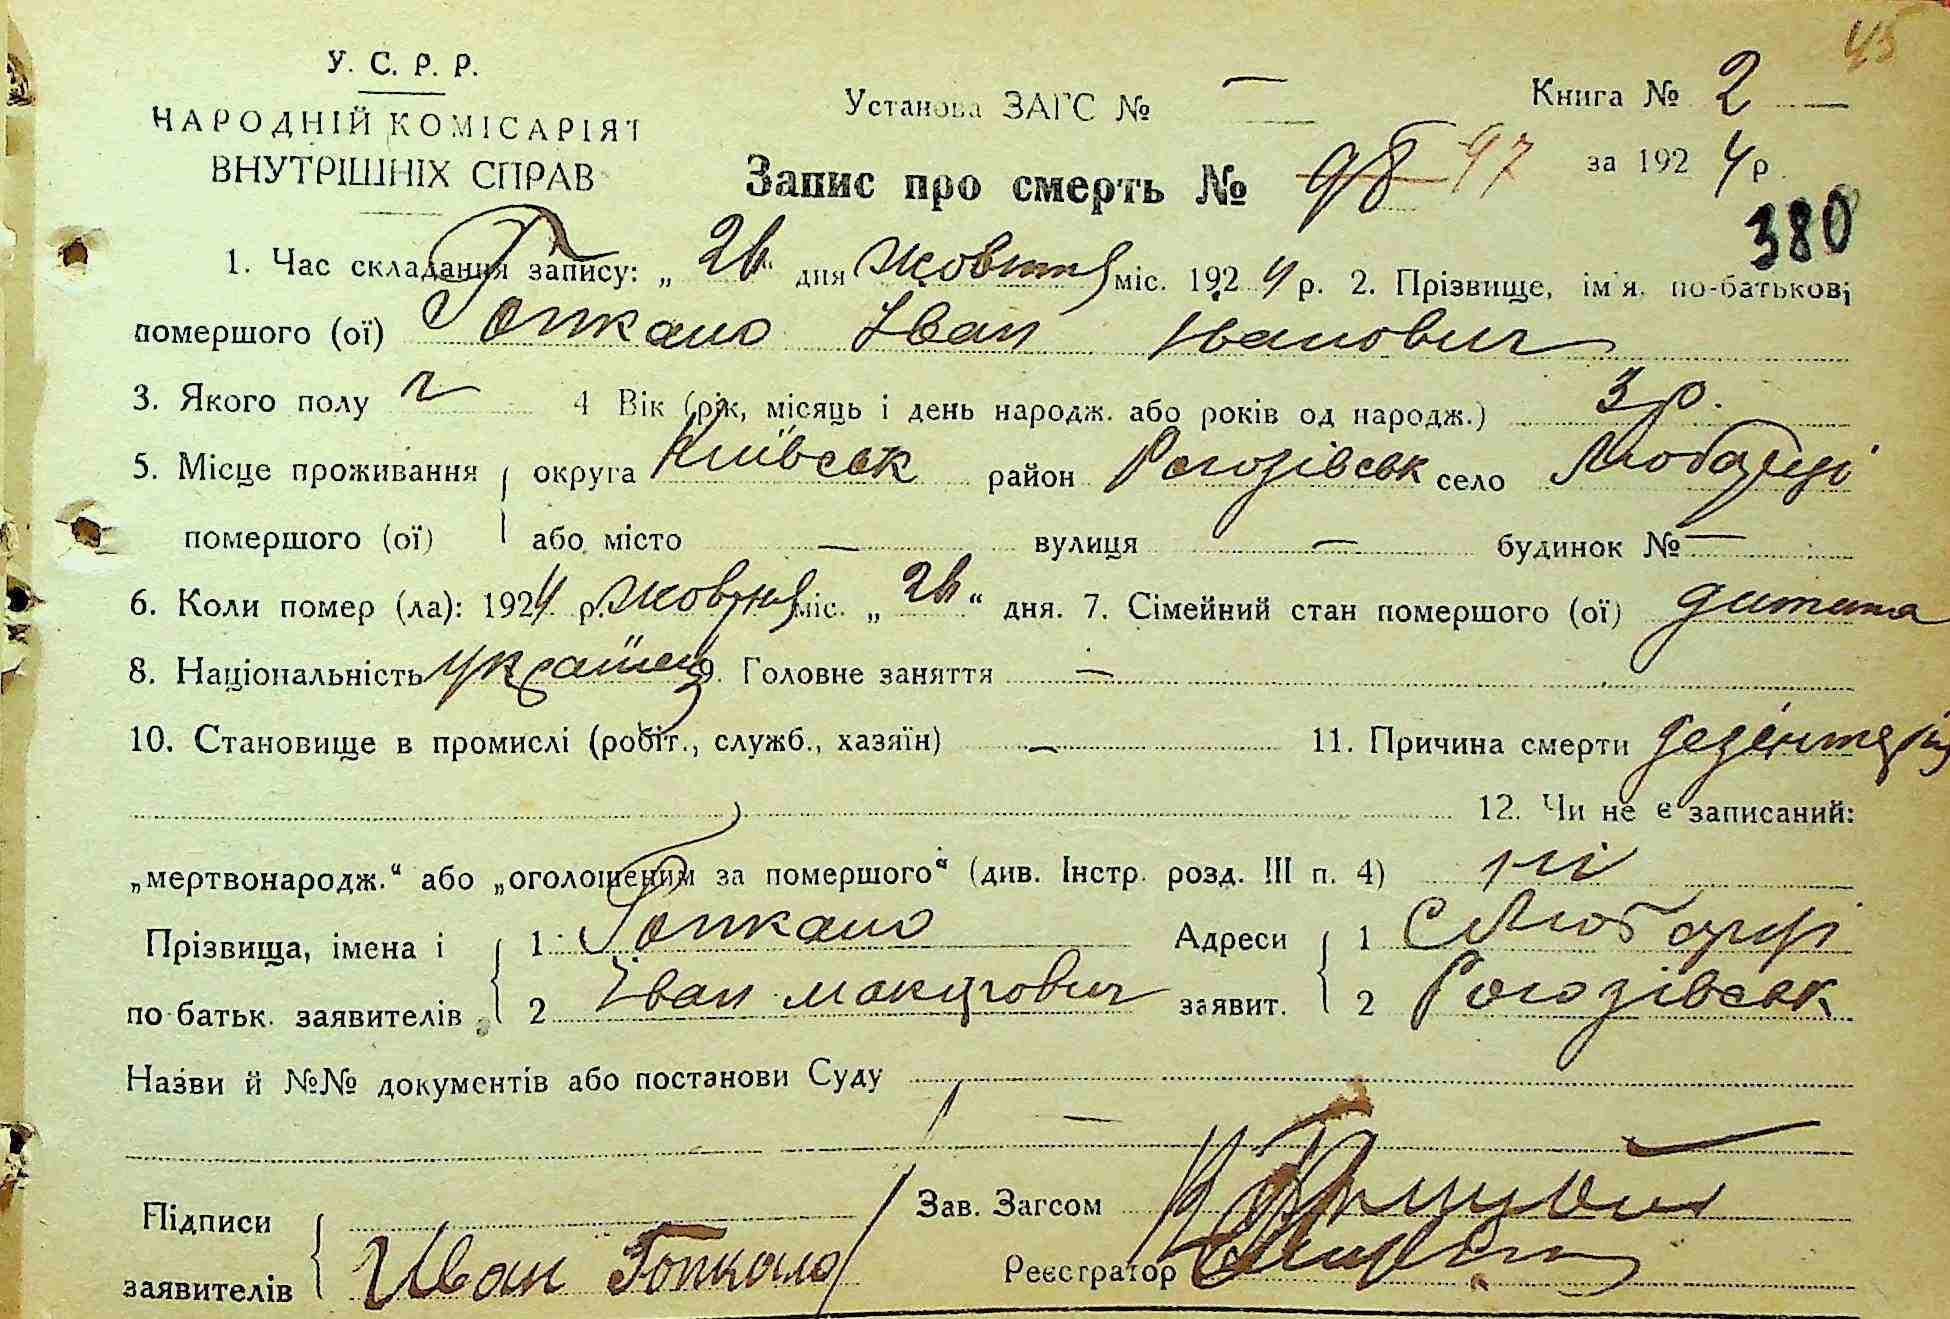 45
У. С. Р. Р.
НАРОДНІЙ КОМІСАРІЯТ
ВНУТРІШНІХ СПРАВ
Установа ЗАГС № —
Книга № 2
Запис про смерть № 98 97
за 1924 р.
380
1. Час складання запису: „26“ дня жовтня міс. 1924 р. 2. Прізвище, ім'я, по-батькові
помершого (ої) Гопкало Іван Іванович
3. Якого полу ч 4 Вік (рік, місяць і день народж. або років од народж.) 3 р.
5. Місце проживання округа Київськ район Рогозівськ село Любарці
помершого (ої) або місто — вулиця — будинок № —
6. Коли помер (ла): 1924 р. жовтня міс. „26“ дня. 7. Сімейний стан помершого (ої) дитина
8. Національність українец 9. Головне заняття —
10. Становище в промислі (робіт., служб., хазяїн) — 11. Причина смерти
12. Чи не є записаний:
„мертвонародж.“ або „оголошеним за помершого“ (див. Інстр. розд. III п. 4) ні
Прізвища, імена і 1 Гопкало Адреси 1 С Любарці
по батьк. заявителів 2 Іван Макарович заявит. 2 Рогозівськ
Назви й №№ документів або постанови Суду
—
Підписи Зав. Загсом
заявителів Иван Гопкало Реєстратор